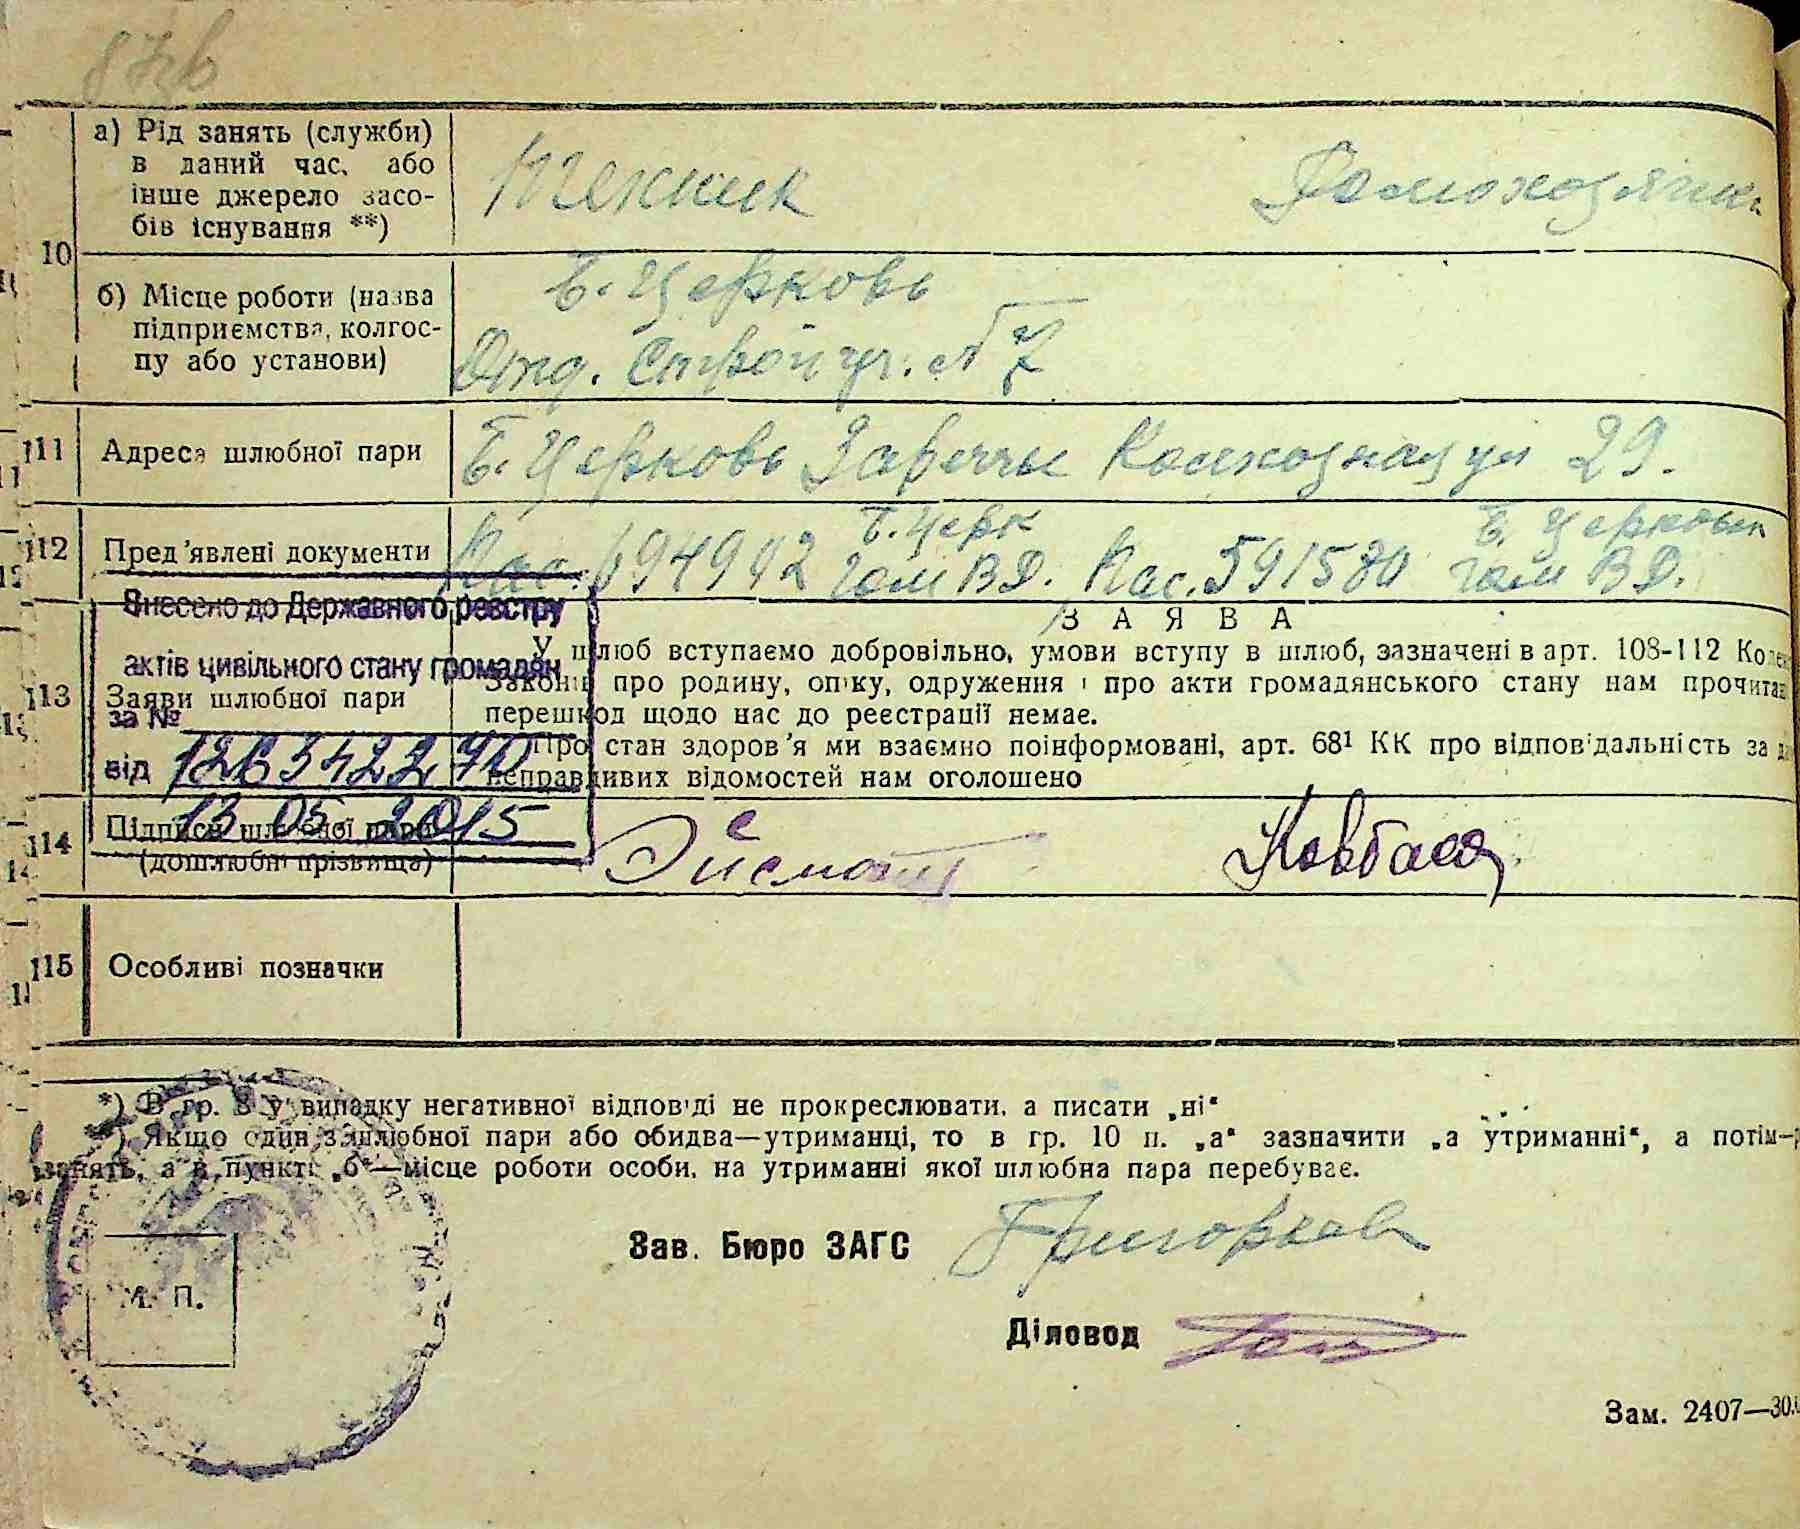 876
10
а) Рід занять (служби)
в даний час, або
інше джерело засо-
бів існування **)
Техник
Домохозяйка
б) Місце роботи (назва
підприємства, колгос-
пу або установи)
Б. Церковь
Отд. Строй уч. № 7
11 Адреса шлюбної пари
Б. Церковь Заречье Колхозная ул 29.
12 Пред'явлені документи
Пас. 694942 Б. Церк ГОМ ВД. Пас. 591580 Б. Церковск ГОМ ВД.
Внесено до Державного реєстру
актів цивільного стану громадян
за №
від 12634227
13.05.2015
13 Заяви шлюбної пари
ЗАЯВА
У шлюб вступаємо добровільно, умови вступу в шлюб, зазначені в арт. 108-112
Законів про родину, опіку, одруження і про акти громадянського стану нам прочитан
перешкод щодо нас до реєстрації немає.
Про стан здоров'я ми взаємно поінформовані, арт. 68¹ КК про відповідальність за
неправдивих відомостей нам оголошено
14 Підписи шлюбної пари
(дошлюбні прізвища)
Эйсмонт
Ковбаса
15 Особливі позначки
*) В гр. 8 у випадку негативної відповіді не прокреслювати, а писати „ні“
**) Якщо один з шлюбної пари або обидва—утриманці, то в гр. 10 п. „а“ зазначити „а утриманні“, а потім—
занять, а в пункті „б“—місце роботи особи, на утриманні якої шлюбна пара перебуває.
Зав. Бюро ЗАГС
М. П.
Діловод
Зам. 2407—30.